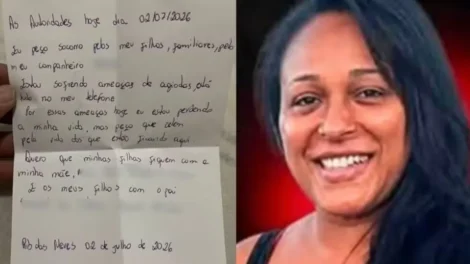 As Autoridades hoje dia 02/07/2026
Eu peço socorro pelos meu filhos, familiares, pelo
meu companheiro
Estou sofrendo ameaças de agiotas, está
no meu telefone
Por essas ameaças hoje eu estou perdendo
a minha vida, mas peço que
pela vida dos que estão ficando aqui
Quero que minhas filhas fiquem com a
minha mãe,
E os meus filhos com o pai
Rib das Neves 02 de julho de 2026